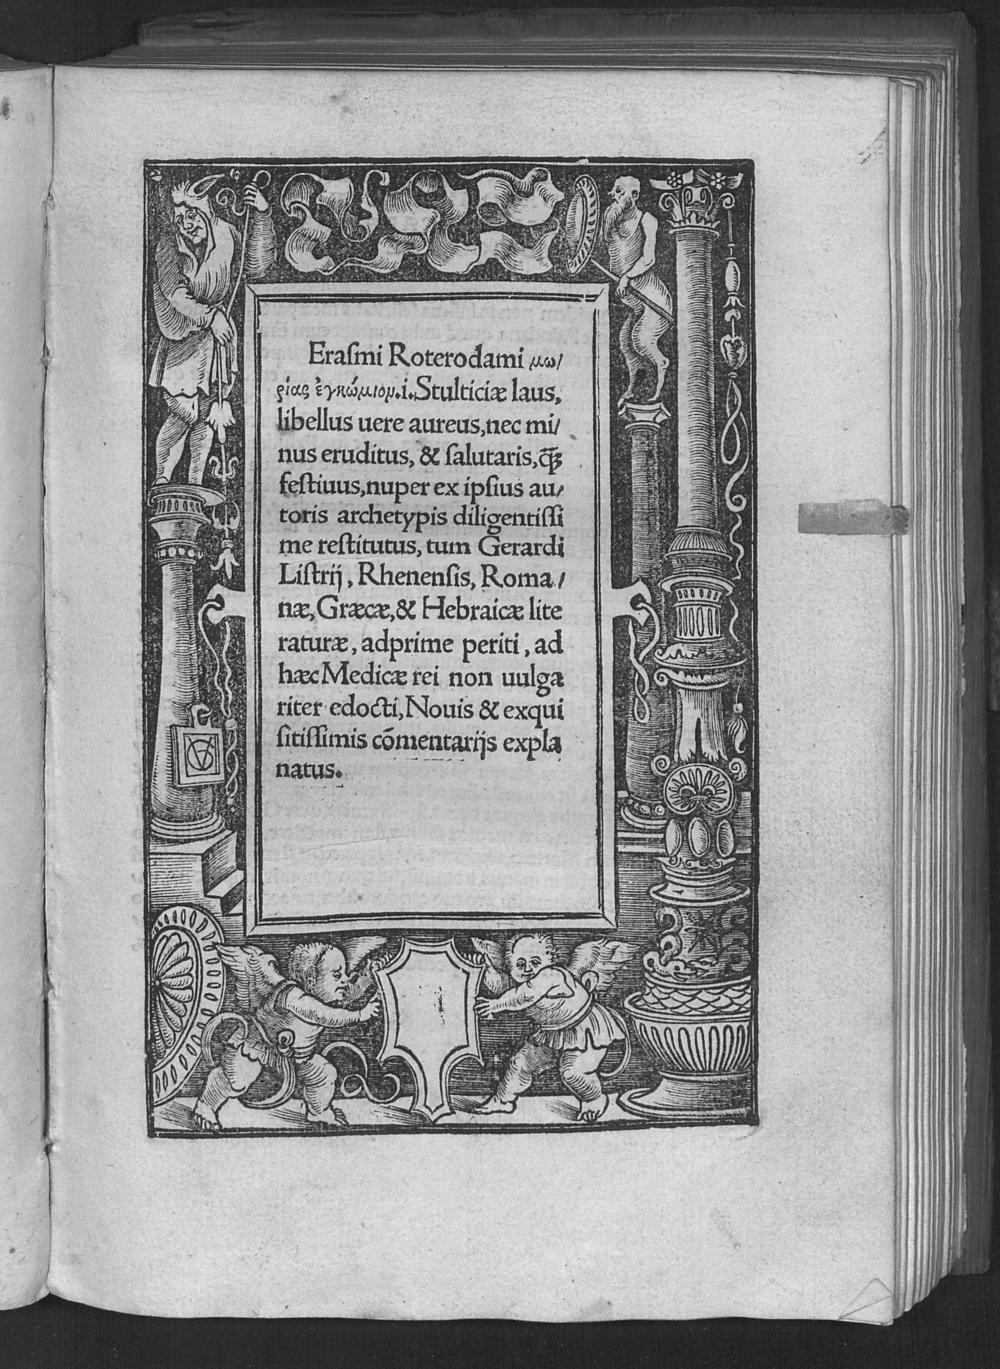 Eraſmi Roterodami μω/
ρίας ἐγκώμιον.i.Stulticiæ laus,
libellus uere aureus,nec mi/
nus eruditus, & ſalutaris,ꝗ̃ꝫ
feſtiuus,nuper ex ipſius au/
toris archetypis diligentiſſi
me reſtitutus, tum Gerardi
Liſtrij, Rhenenſis, Roma/
næ,Græcæ,& Hebraicæ lite
raturæ, adprime periti, ad
hæc Medicæ rei non uulga
riter edocti,Nouis & exqui
ſitiſſimis cõmentarijs expla
natus.